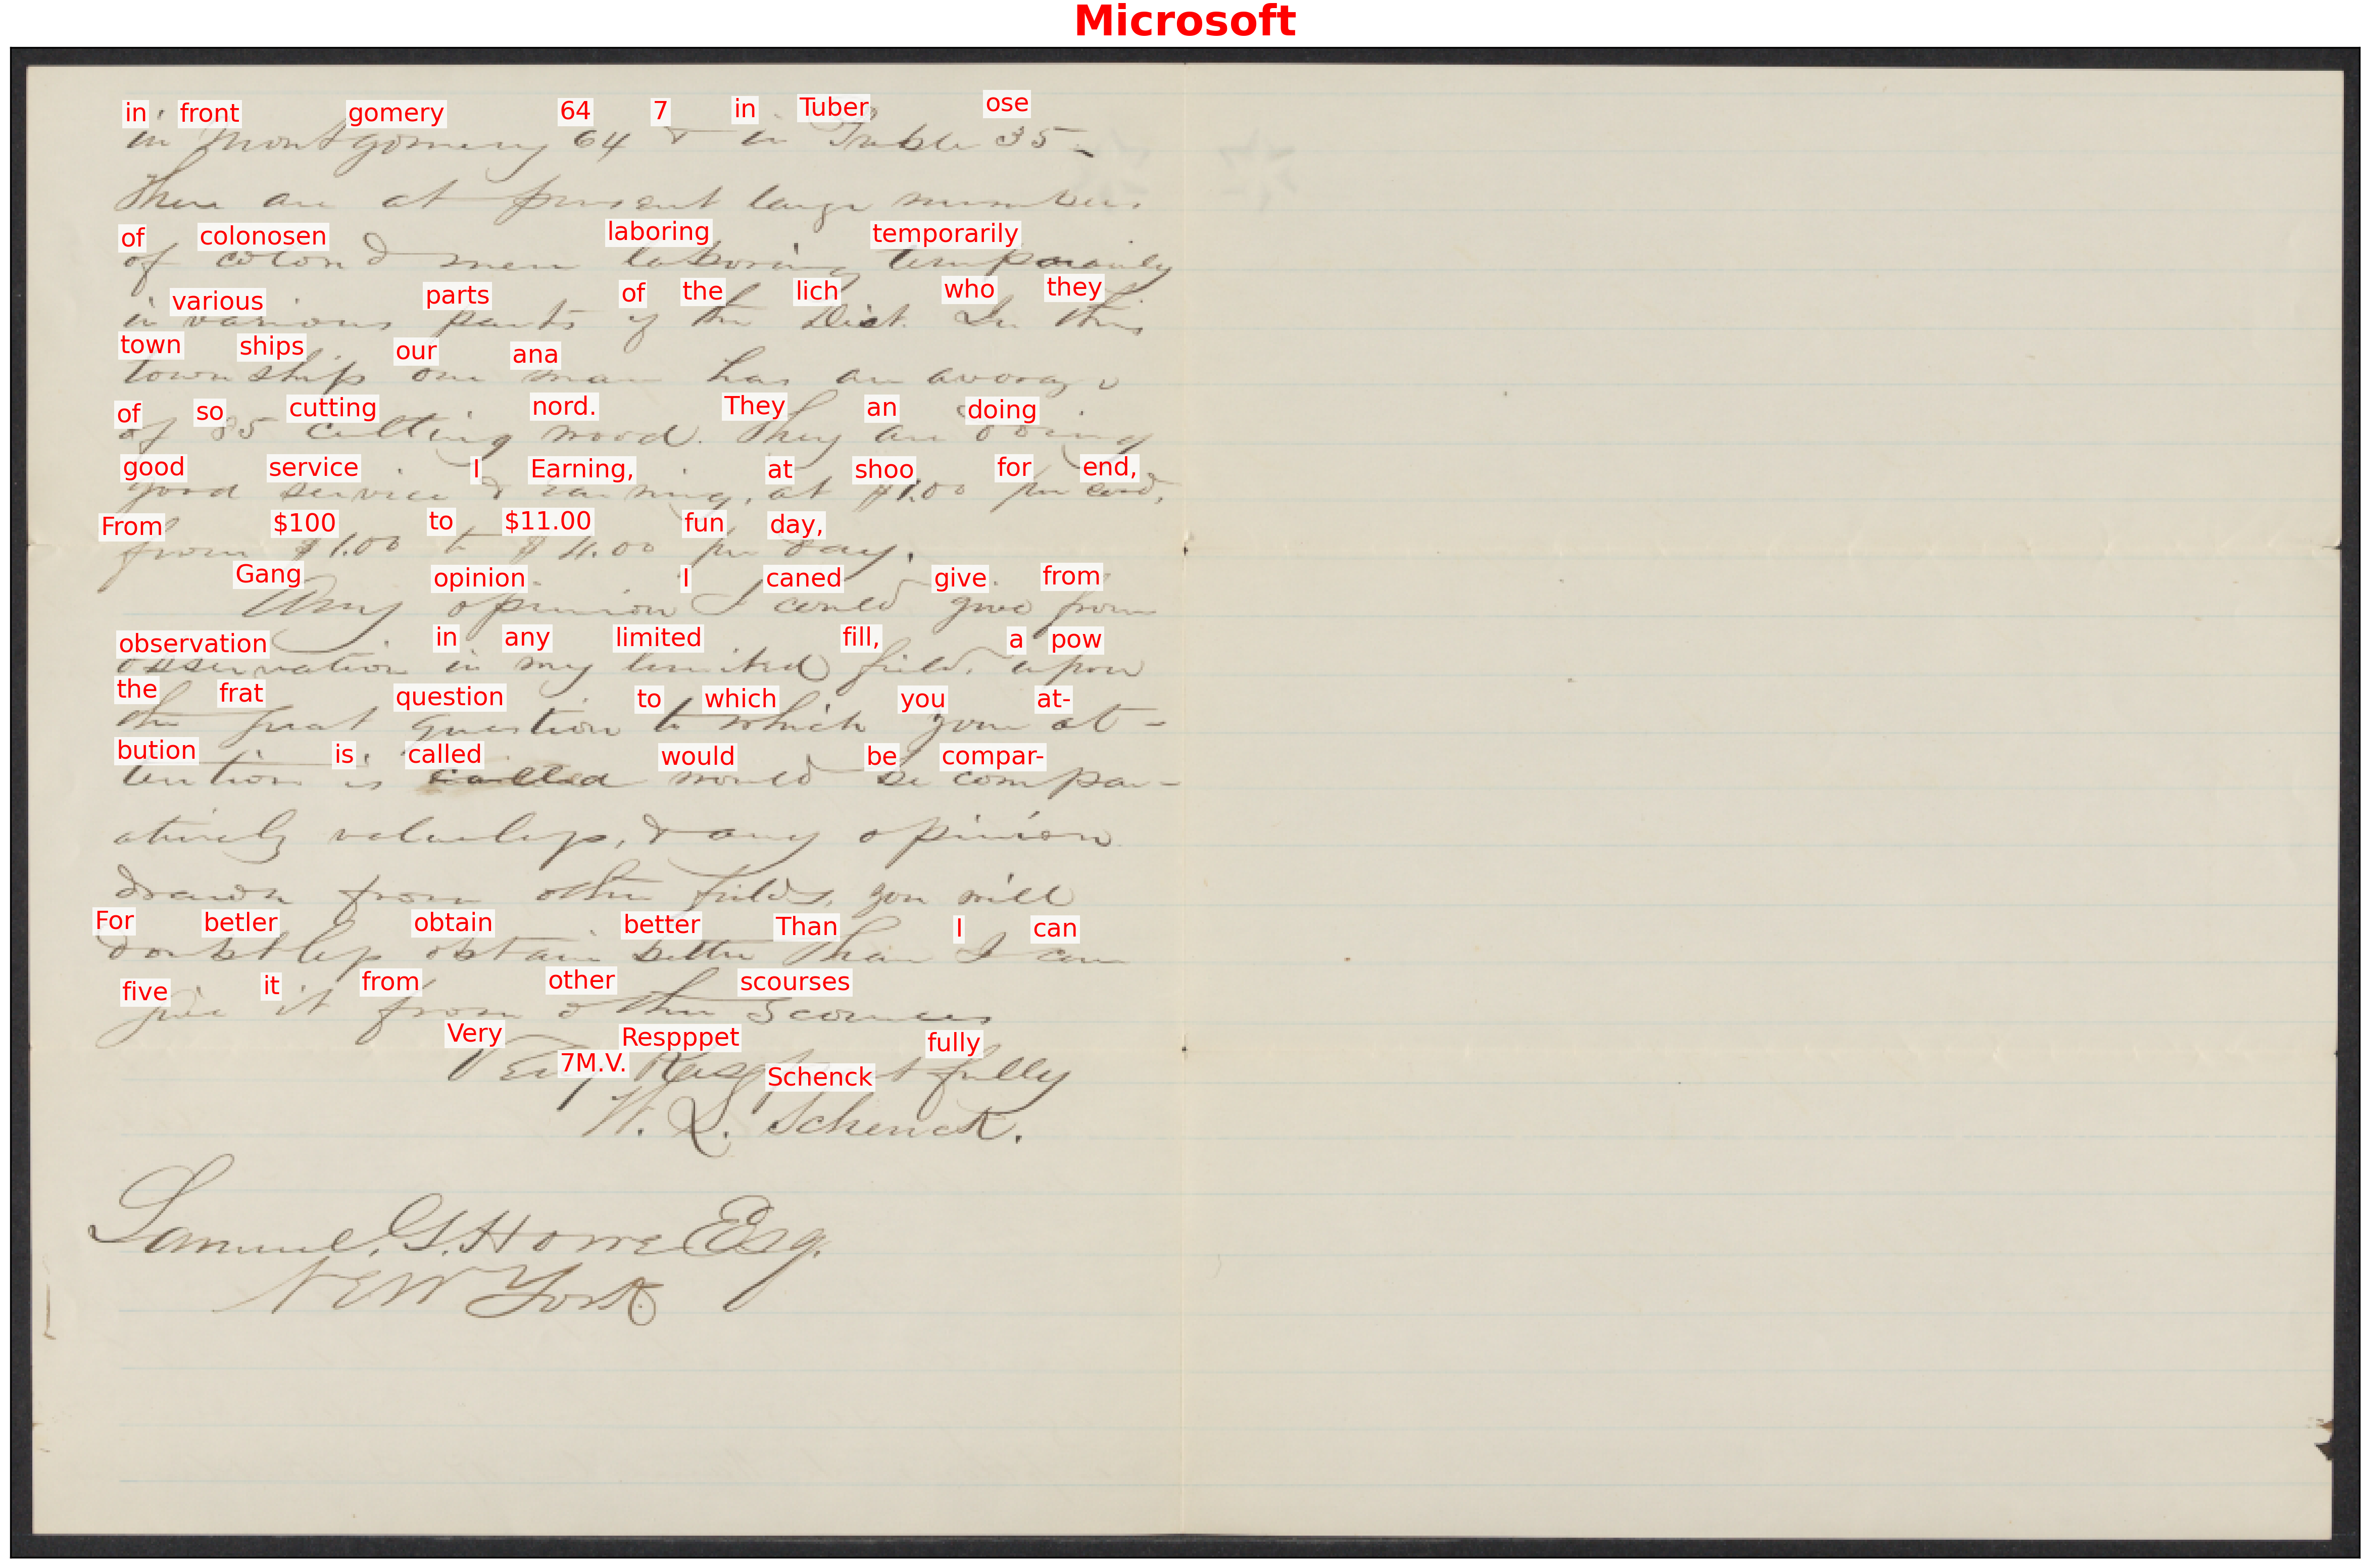 Microsoft
in front gomery 64 7 in Tuber ose
in Montgomery 64 & in Preble 35 -
There are at present large numbers
of colonosen laboring temporarily
of colored men laboring temporarily
various parts of the lich who they
in various parts of the Dist. In this
town ships our ana
township one man has an average
of so cutting nord. They an doing
of 35 cutting wood. They are doing
good service I Earning, at shoo for end,
good service & earning, at $1.00 per cord,
From $100 to $11.00 fun day,
from $1.00 to per day.
Gang opinion I caned give from
Any opinion I could give from
observation in any limited fill, a pow
observation in my limited field, upon
the frat question to which you at-
the great question to which your at-
bution is called would be compar-
tention is called would be compar-
atively valueless, & any opinion
drawn from other fields, you will
For betler obtain better Than I can
doubtless obtain better than I can
five it from other scourses
give it from other Scources
Very Respppet fully
Very Respectfully
7M.V. Schenck
W. S. Schenck.
Samuel G. Howe Esq.
New York